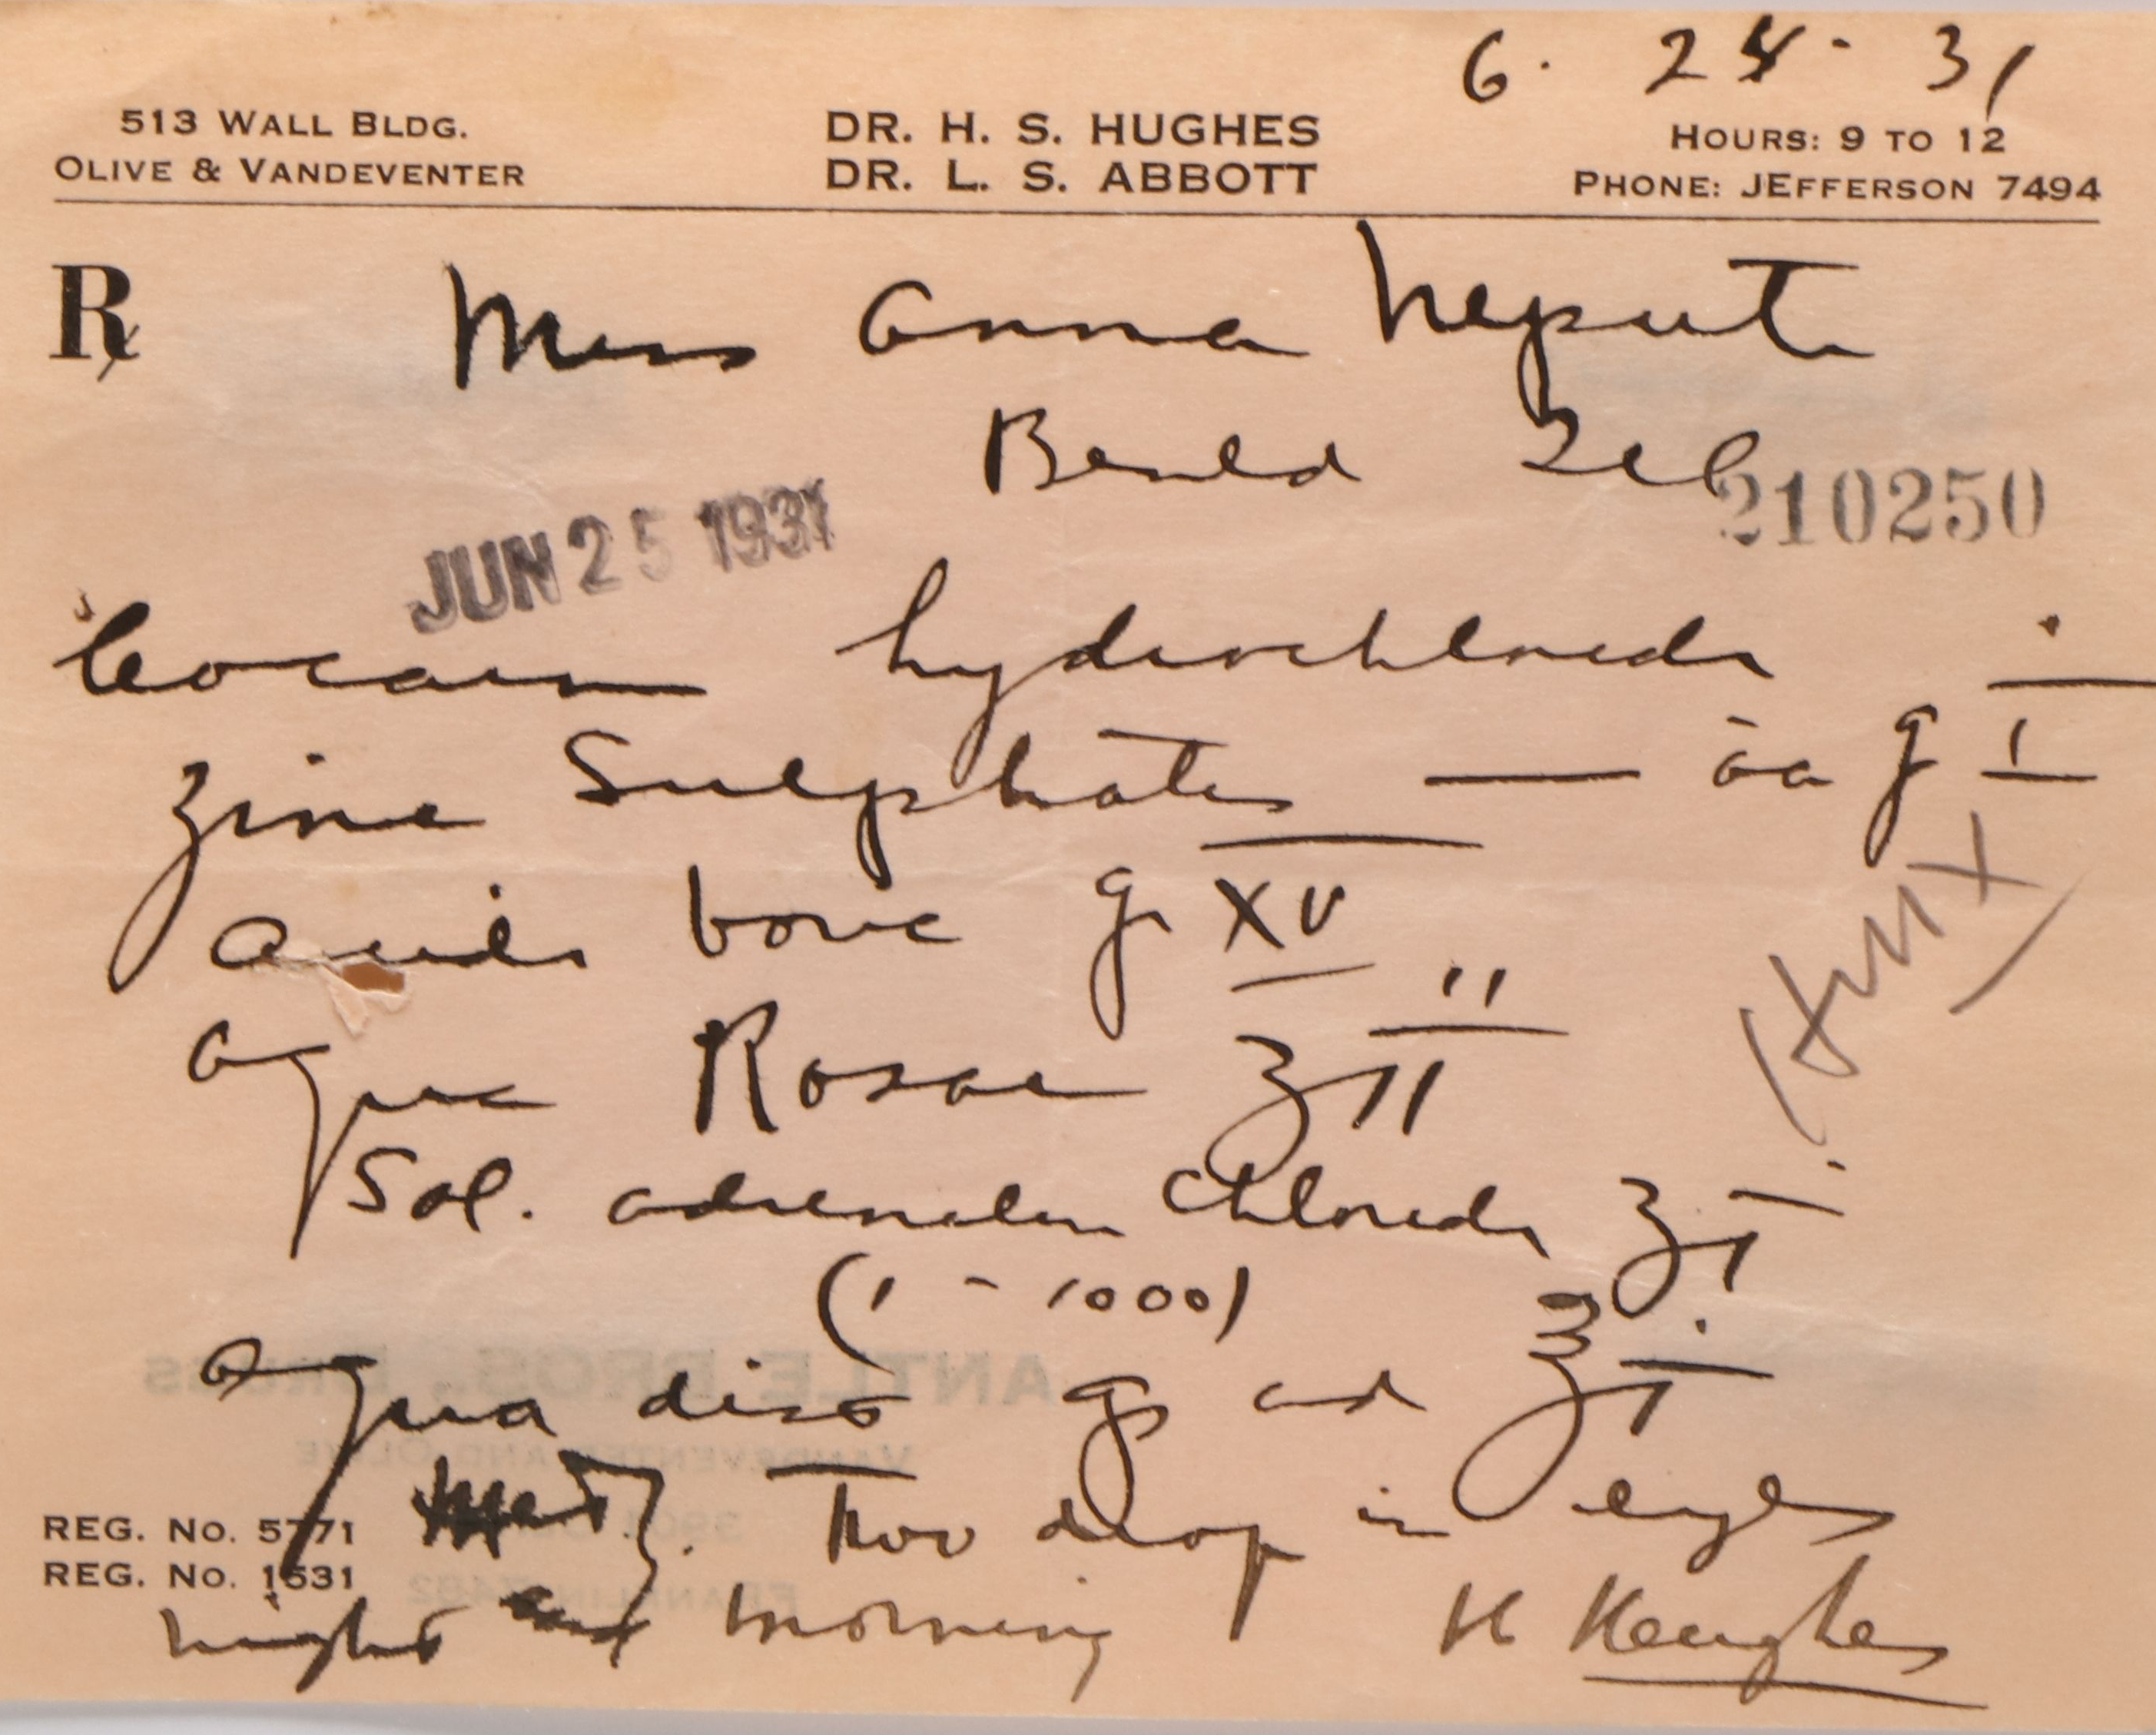 6. 25 - 31
513 WALL BLDG.
OLIVE & VANDEVENTER
DR. H. S. HUGHES
DR. L. S. ABBOTT
HOURS: 9 TO 12
PHONE: JEFFERSON 7494
Rx
Miss Anna
Benld Ill
210250
JUN 25 1931
Cocain hydrochlorid
Zinc Sulphate — aa g I
Acid boric gr XV
Aqua Rosae ʒ II
Sol. adrenalin chlorid ʒ I
(1 - 1000)
Aqua dist qs ad ℥ I
Two drop in eyes
night and morning
H Hughes
REG. No. 5771
REG. No. 1531
ANTLE BROS., DRUGS
VANDEVENTER AND OLIVE
FRANKLIN 7482